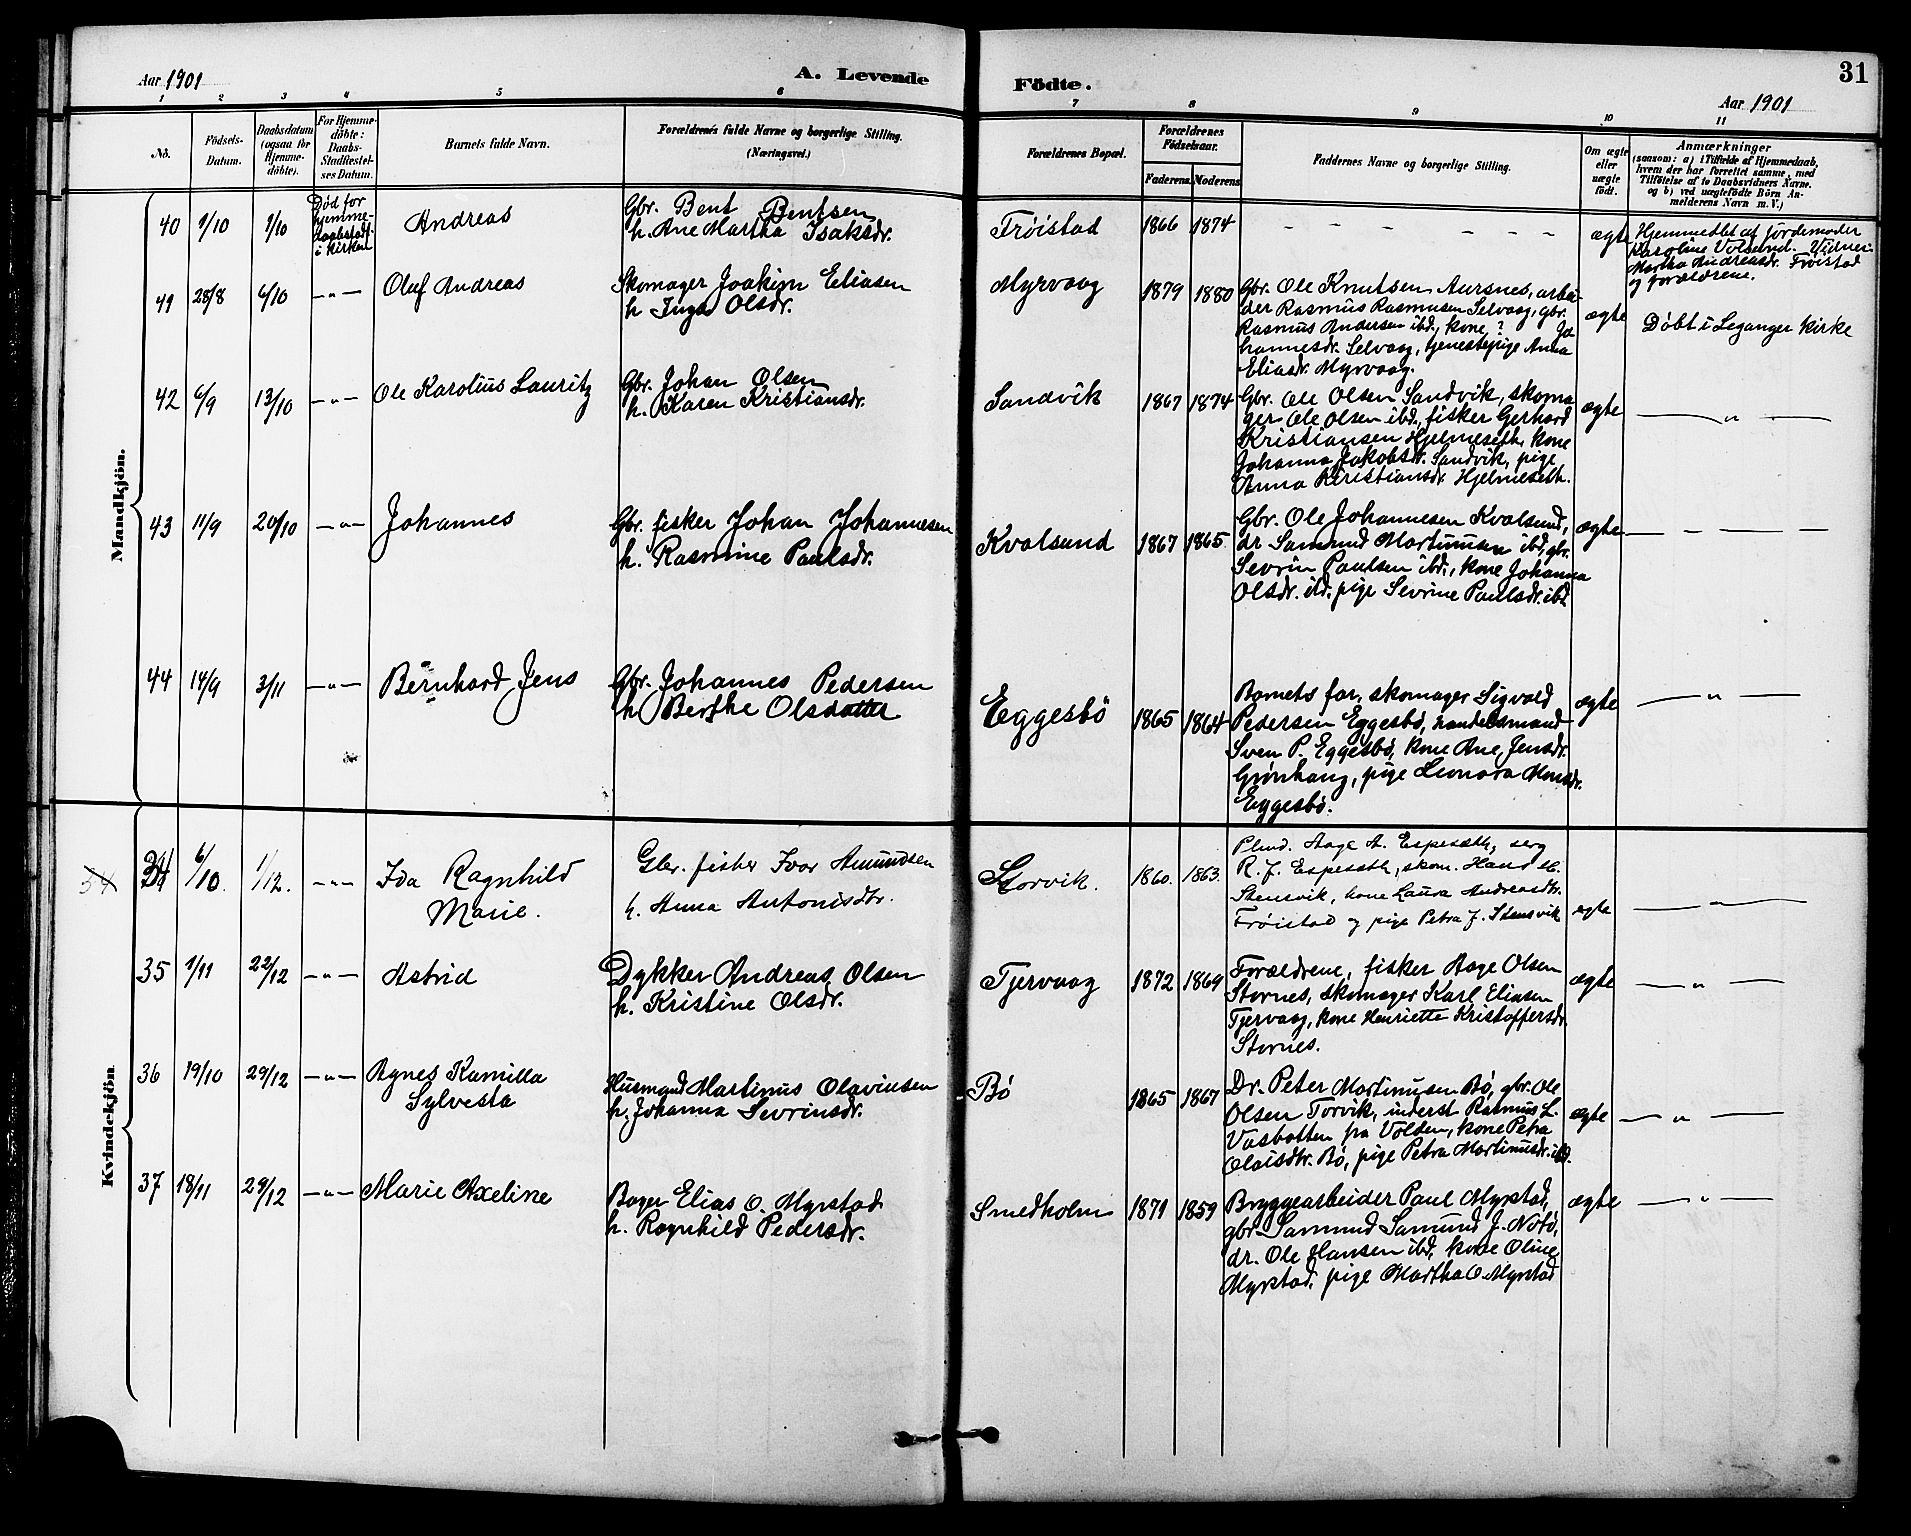 Aar 1901
A. Levende
Födte.
31
Aar 1901
1 2 3 4 5 6 7 8 9 10 11
No.
Födsels-
Datum.
Daabsdatum
(ogsaa for
Hjemme-
döbte).
For Hjemme-
döbte:
Daabs-
Stadfæstel-
ses Datum.
Barnets fulde Navn.
Forældrenes fulde Navne og borgerlige Stilling.
(Næringsvei.)
Forældrenes Bopæl.
Forældrenes
Födselsaar.
Faderens.
Moderens.
Faddernes Navne og borgerlige Stilling.
Om ægte
eller
uægte
födt.
Anmærkninger
(saasom: a) i Tilfælde af Hjemmedaab,
hvem der har forrettet samme, med
Tilföielse af to Daabsvidners Navne.
og b) ved uægtefödte Börn An-
melderens Navn m. V.)
Mandkjön.
40 1/10 1/10
Død for
hjemme-
daabstadf.
i kirken
Andreas
Gbr. Bent Bentsen
h. Ane Martha Isaksdr.
Frøistad 1866 1874 - - - - - - - ægte
Hjemmedbt af jordemoder
Karoline Volsund. Vidner:
Martha Andreasdr. Frøistad
og forældrene.
41 28/8 6/10 —„— Oluf Andreas
Skomager Joakim Eliasen
h Inga Olsdr.
Myrvaag 1879 1880
Gbr. Ole Knutsen Aursnes, arbei-
der Rasmus Rasmusen Selvaag, gbr.
Rasmus Andersen ibd., kone ? Jo
hannesdr. Selvaag, tjenestepige Anna
Eliasdr. Myrvaag.
ægte
Döbt i Leganger kirke
42 6/9 13/10 —„— Ole Karolius Lauritz
Gbr. Johan Olsen
h. Karen Kristiansdr.
Sandvik 1867 1874
Gbr. Ole Olsen Sandvik, skoma
ger Ole Olsen ibd., fisker Gerhard
Kristiansen Hjelmeseth, kone
Johanna Jakobsdr. Sandvik, pige
Anna Kristiansdr. Hjelmeseth.
ægte — „ —
43 11/9 20/10 —„— Johannes
Gbr. fisker Johan Johannesen
h. Rasmine Paulsdr.
Kvalsund 1867 1865
Gbr. Ole Johannesen Kvalsund,
dr Samund Martinusen ibd, gbr.
Sevrin Paulsen ibd., kone Johanna
Olsdr. ibd. pige Sevrine Paulsdr. ibd
ægte — — — —
44 14/9 3/11 —„— Bernhard Jens
Gbr. Johannes Pedersen
h Berthe Olsdatter
Eggesbö 1865 1864
Barnets far, skomager Sigvald
Pedersen Eggesbö, handelsmand
Sven P. Eggesbö, kone Ane Jensdr.
Grønhaug, pige Leonora Monsdr.
Eggesbö.
ægte — „ —
Kvindekjön.
34 34 6/10. 1/12. —„— Ida Ragnhild
Marie.
Gbr. fisker Ivar Amundsen
h. Anna Antonisdtr.
Storvik. 1860. 1863.
Aage A. Espesæth, serg
R. J. Espesæth, skom. Hans H.
Stensvik, kone Laura Andreasdtr.
Frøistad og pige Petra J. Stensvik
egte — „ —
35 1/11 22/12 —„— Astrid
Dykker Andreas Olsen
h. Kristine Olsdr.
Tjervaag 1872 1869
Forældrene, fisker Aage Olsen
Stornes, skomager Karl Eliasen
Tjervaag, kone Henriette Kristoffersdr.
Stornes.
ægte — „ —
36 19/10 29/12 —„— Agnes Kamilla
Sylvesta
Husmand Martinus Olavinsen
h. Johanna Sevrinsdr.
Bø 1865 1867
Dr. Peter Martinusen Bø, gbr. Ole
Olsen Torvik, inderst Rasmus L.
Vasbotten pa Volden, kone Petra
Olaisdtr. Bø, pige Petra Martinusdr. ibd.
ægte — „ —
37 18/11 29/12 —„— Marie Axeline
Bager Elias O. Myrstad
h. Ragnhild Pedersdr.
Smedholm 1871 1859
Bryggearbeider Paul Myrstad,
gbr. Samund Samund J. Notø,
dr. Ole Hansen ibd, kone Oline
Myrstad, pige Martha O. Myrstad
ægte — „ —